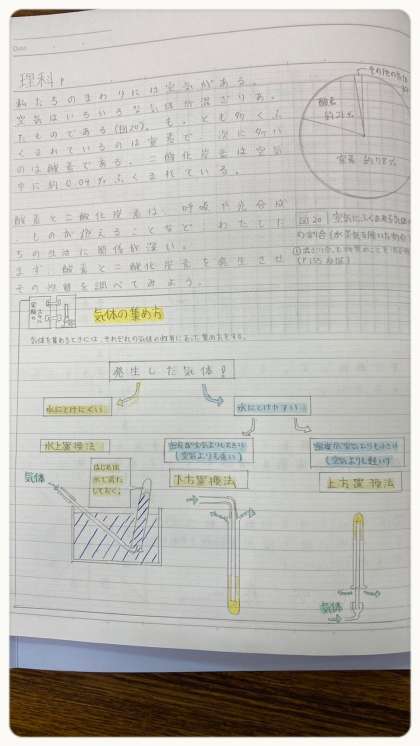 理科
私たちのまわりには空気がある。
空気はいろいろな気体が混ざりあっ
たものである(図20)。もっとも多くふ
くまれているのは窒素で、次に多い
のは酸素である。二酸化炭素は空気
中に約0.04%ふくまれている。
酸素と二酸化炭素は、呼吸や光合成
、ものが燃えることなど、わたした
ちの生活に関係が深い。
まず、酸素と二酸化炭素を発生させ
その性質を調べてみよう。
酸素
約21%
窒素 約78%
図20 空気にふくまれる気体
の割合(水蒸気を除いた割合)
気体の集め方
気体を集めるときには、それぞれの気体の性質にあった集め方をする。
発生した気体!
水にとけにくい
水にとけやすい
水上置換法
密度が空気よりも大きい
(空気よりも重い)
下方置換法
密度が空気よりも小さい
(空気よりも軽い)
上方置換法
気体
はじめは
水で満た
しておく。
気体